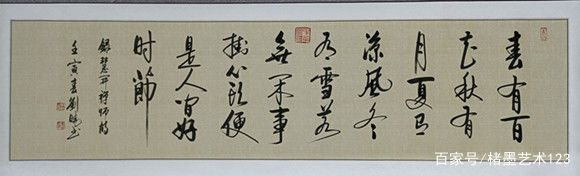 春有百
花秋有
月夏有
凉风冬
有雪若
無闲事
挂心头便
是人间好
时節
錄慧开禅师诗
壬寅春劉书
百家号/楮墨艺术123